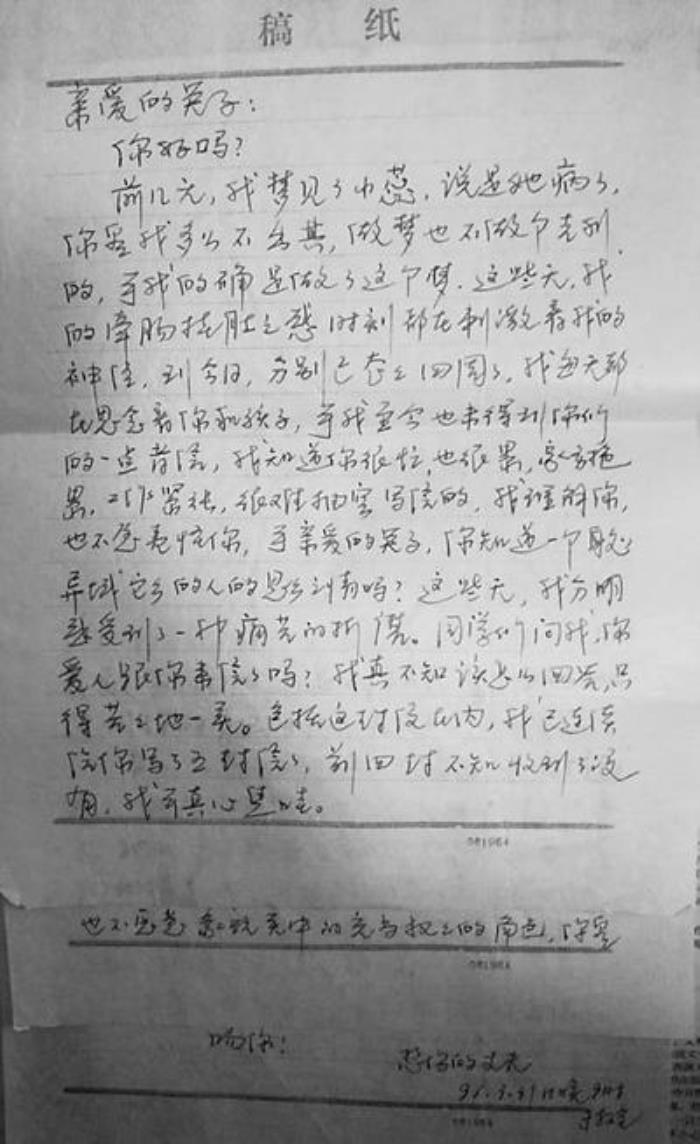 稿 纸
亲爱的英子：
你好吗？
前几天，我梦见了小蕊，说是她病了，
你骂我多么不公其，做梦也不做个吉利
的，可我的确是做了这个梦．这些天，我
的牵肠挂肚之愁时刻都在刺激着我的
神经，到今日，分别已整整四周了，我每天都
在思念着你和孩子，可我至今也未得到你们
的一点音信，我知道你很忙，也很累，家务
累，工作紧张，很难抽空写信的，我理解你，
也不愿责怪你，可亲爱的英子，你知道一个身处
异域的人的思念之情吗？这些天，我分明
感受到了一种痛苦的折磨。同学们问我，你
爱人跟你来信了吗？我真不知该怎么回答，只
得苦苦地一笑。包括这封信在内，我已连续
给你写了五封信了，前四封不知收到了没
有，我可真心急哇。
081964
也不愿意 的角色，你是
081964
吻你！
想你的丈夫
081964